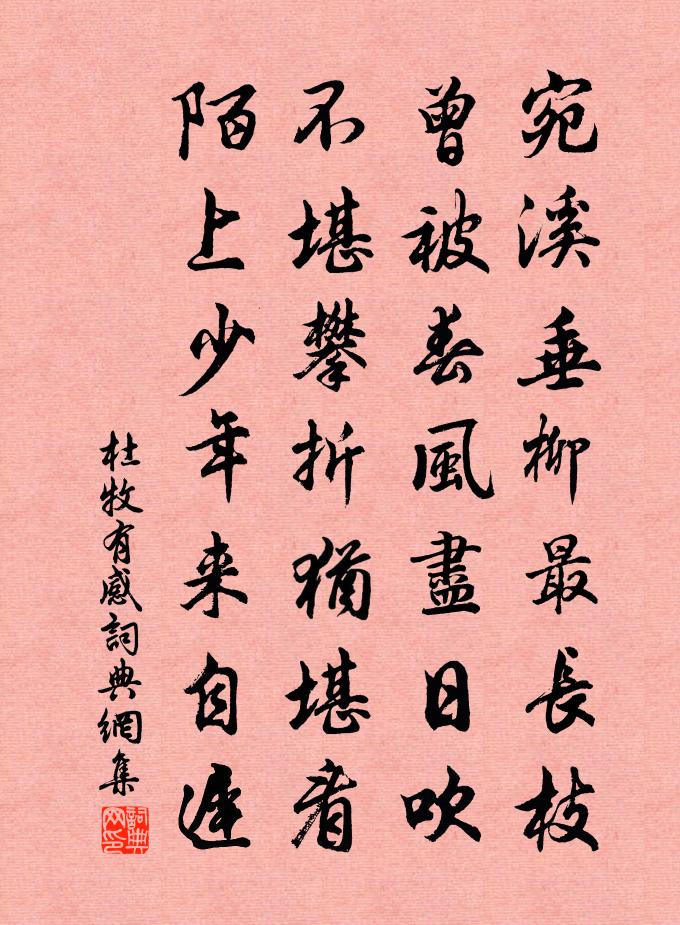 宛溪垂柳最長枝
曾被春風盡日吹
不堪攀折猶堪看
陌上少年来自遲
杜牧有感詞典網集
詞典网印